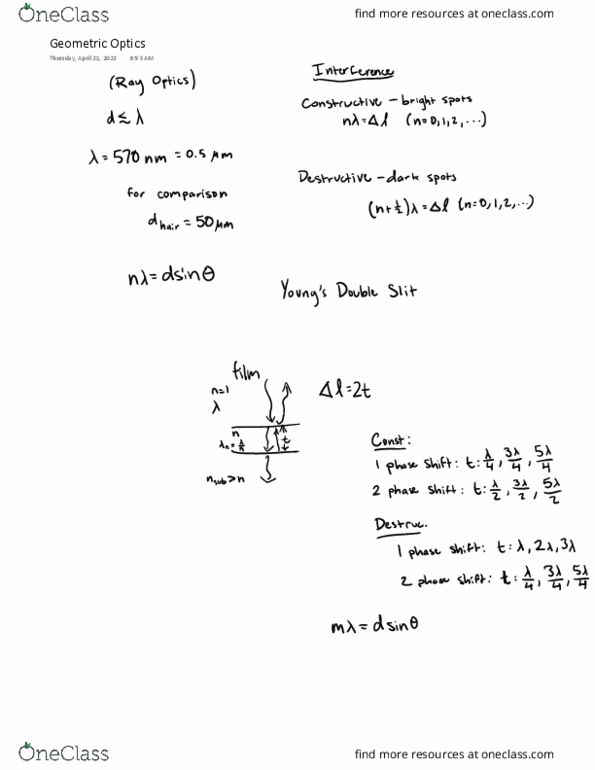 OneClass
find more resources at oneclass.com
Geometric Optics
Thursday, April 21, 2022 9:53 AM
(Ray Optics)
d ≤ λ
λ = 570 nm = 0.5 μm
for comparison
d hair = 50 μm
nλ = d sin θ
Interference
Constructive – bright spots
nλ = Δl (n = 0, 1, 2, ...)
Destructive – dark spots
(n + 1/2)λ = Δl (n = 0, 1, 2, ...)
Young's Double Slit
film
n=1
λ
n
λn = λ/n
t
nsub > n
Δl = 2t
Const:
1 phase shift: t: λ/4, 3λ/4, 5λ/4
2 phase shift: t: λ/2, 3λ/2, 5λ/2
Destruc.
1 phase shift: t: λ, 2λ, 3λ
2 phase shift: t: λ/4, 3λ/4, 5λ/4
mλ = d sin θ
OneClass
find more resources at oneclass.com